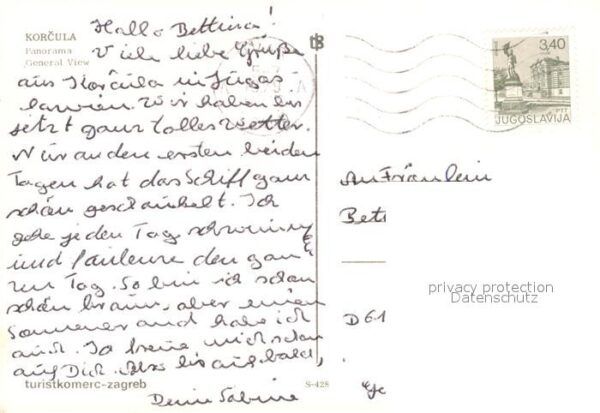 KORČULA
Panorama
General View
Hallo Bettina!
Viele liebe Grüße
aus Korčula in Jugos-
lawien. Wir haben bis
jetzt ganz tolles Wetter.
Nur an den ersten beiden
Tagen hat das Schiff ganz
schön geschaukelt. Ich
gehe jeden Tag schwimmen
und faulenze den gan-
zen Tag. So bin ich schon
schön braun, aber einen
Sonnenbrand habe ich
auch. Ich freue mich schon
auf Dich. Also bis auf bald,
Deine Sabine
turistkomerc-zagreb
S-428
3,40
PTT
JUGOSLAVIJA
An Fräulein
Bett
D 61
privacy protection
Datenschutz